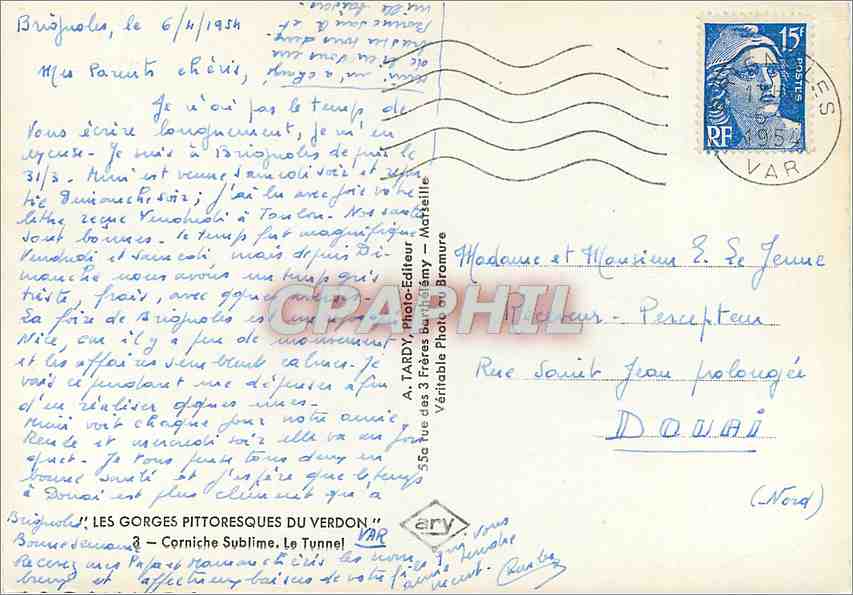 Brignoles, le 6/4/1954
Mes Parents chéris,
Je n'ai pas le temps de
Vous écrire longuement, je m'en
excuse - Je suis à Brignoles depuis le
31/3 - Mimi est venue samedi soir et repar-
tie Dimanche soir; j'ai lu avec joie votre
lettre reçue Vendredi à Toulon - Nos santés
sont bonnes - le temps fut magnifique
Vendredi et samedi mais depuis Di-
manche nous avons un temps gris
triste, frais, avec qques
La foire de Brignoles est
Nice, car il y a peu de mouvement
et les affaires semblent calmes - Je
vais cependant me dépenser afin
d'en réaliser qques unes -
Mimi voit chaque jour notre amie
et mercredi soir elle va
Je vous pense tous deux en
bonne santé et j'espère que le temps
à Douai est plus clément qu'à
Brignoles
Bonne semaine
Recevez mes Papa et Maman chéris les nom-
breux et affectueux baisers de votre fils qui vous
aime tendre
ment -
15F
POSTES
RF
1954
VAR
Madame et Monsieur E. Le Jenne
Receveur - Percepteur
Rue Saint Jean prolongée
DOUAI
(Nord)
A. TARDY, Photo-Editeur
55a rue des 3 Frères Barthélémy — Marseille
Véritable Photo au Bromure
CPAPHIL
" LES GORGES PITTORESQUES DU VERDON "
3 — Corniche Sublime. Le Tunnel
VAR
ary